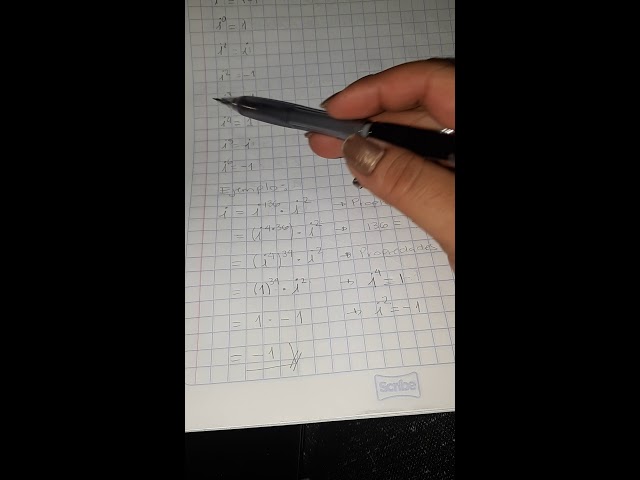 i⁰ = 1
i¹ = i
i² = -1
i⁴ = 1
i⁵ = i
i⁶ = -1
Ejemplo:
i = i¹³⁶ · i²
= (i⁴·³⁴) · i² → 136 =
= (i⁴)³⁴ · i² → Propiedades
= (1)³⁴ · i² → i⁴ = 1
= 1 · -1 → i² = -1
= -1
Scribe